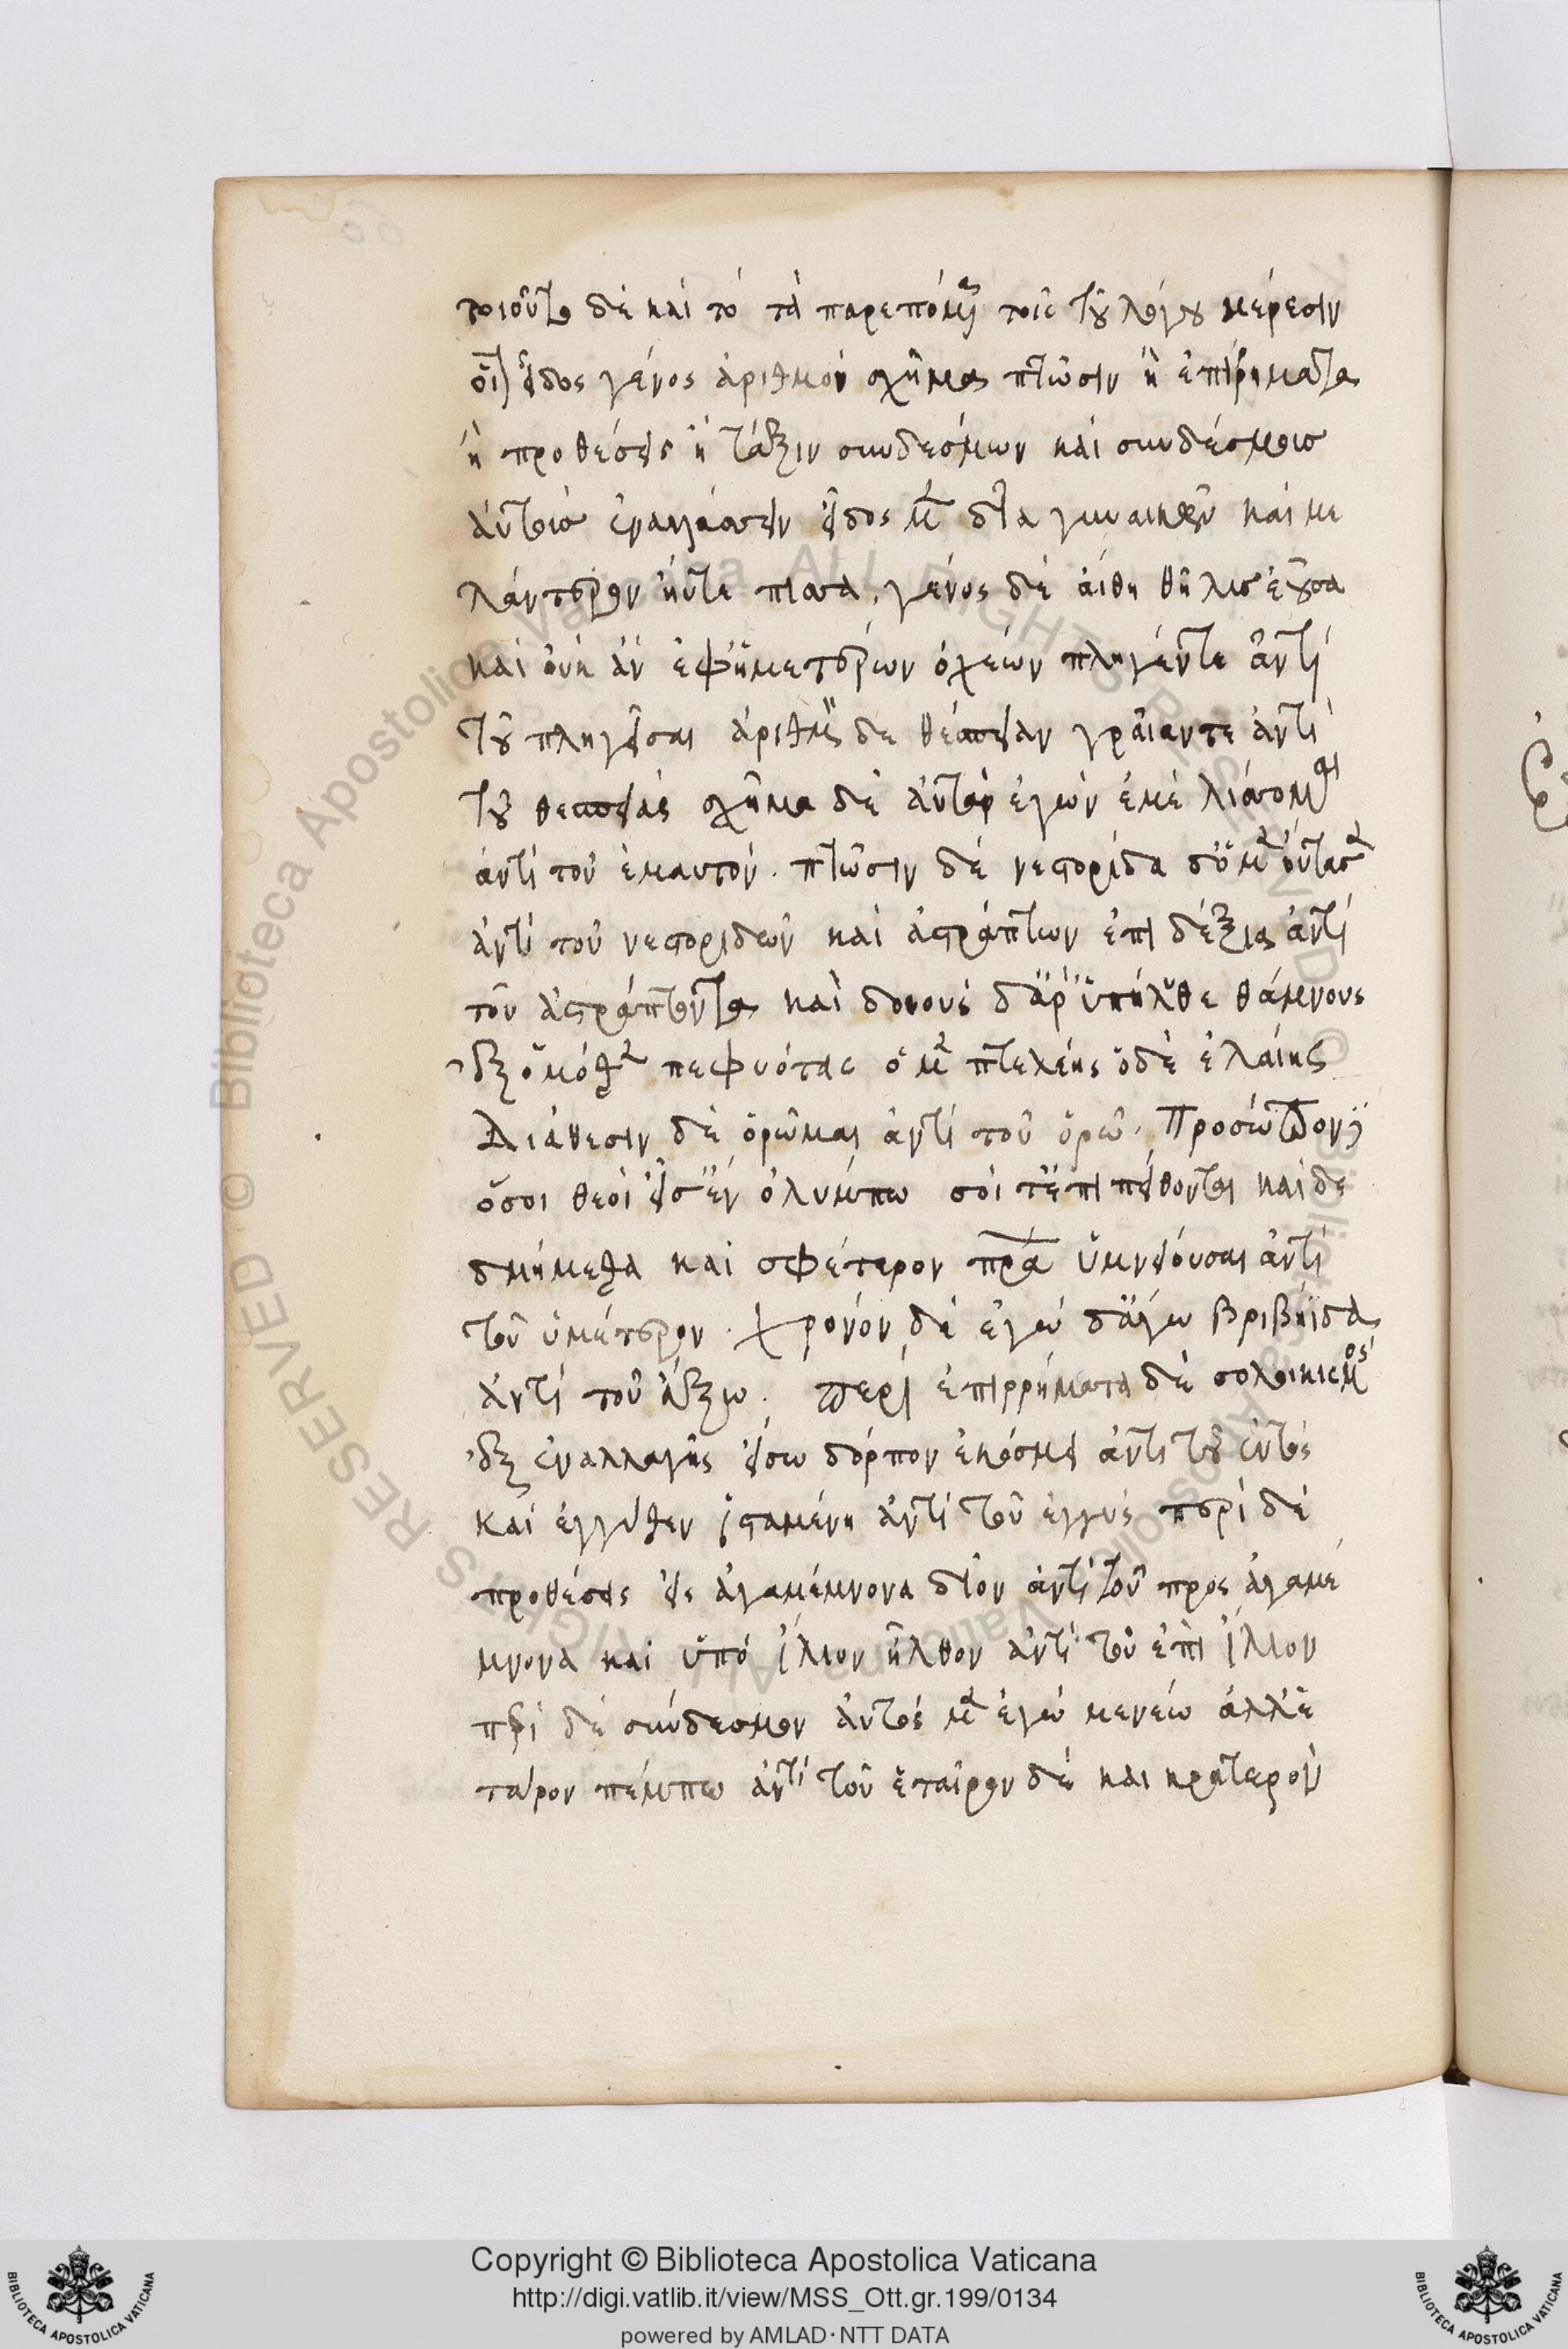 τοιοῦτο δὲ καὶ τὸ τὰ παρεπόμ τοῖς τοῦ λόγου μέρεσιν
εἶδος γένος ἀριθμὸν σχῆμα πτῶσιν ἢ ἐπιρήματα
ἢ προθέσεις ἢ τάξιν συνδέσμων καὶ συνδέσμοις
ἀντοις εἶδος μ δῖα γυναικῶν καὶ με
λάντερον ἠύτε πίσσα. γένος δὲ αἴθη θῆλυς ἐοῦσα
καὶ οὐκ ἂν ἐφ ἡμετέρων ὀχέων πληγέντε ἀντὶ
τοῦ πληγεῖσαι ἀριθμ δε θεασψαν ἀντὶ
τοῦ σχῆμα δὲ αὐτὰρ ἐγὼν ἐμὲ λισομαι
ἀντὶ τοῦ ἐμαυτόν. πτῶσιν δὲ νεστορίδα δύ μ οὔτασ
ἀντὶ τοῦ νεστοριδῶν καὶ ἀστράπτων ἐπιδέξια ἀντὶ
τὸν ἀστράπτοντα καὶ δοιοὺς δ ἄρ ὑπήλθε θάμνους
ἐξ ὁμόθ πεφυότας ὁ μ πτελέης ὁ δὲ ἐλαίης
Διάθεσιν δὲ ὁρῶμαι ἀντὶ τοῦ ὁρῶ. Πρόσωπον
ὅσοι θεοί εἰσ ἐν ὀλύμπω σοί τ ἐπιπείθονται καὶ δε
δμήμεθα καὶ σφέτερον πρα ὑμνείουσαι ἀντὶ
τοῦ ὑμέτερον. Χρόνον δὲ ἐγὼ δ ἄγω βριβηίδα
ἀντὶ τοῦ ἄξω. Περὶ ἐπιρρήματα δὲ σολοικισμος
ἐξ ἐναλλαγῆς εἴσω δόρπον ἐκόσμει ἀντὶ τοῦ ἐντὸς
καὶ ἐγγύθεν ἱσταμένη ἀντὶ τοῦ ἐγγύς περὶ δὲ
προθέσεις εἰς ἀγαμέμνονα δῖον ἀντὶ τοῦ πρὸς ἀγαμέ
μνονα καὶ ὑπὸ ἴλιον ἦλθον ἀντὶ τοῦ ἐπὶ ἴλιον
περὶ δὲ σύνδεσμον αὐτὸς μ ἐγὼ μενέω ἀλλ ἑ
ταρον πέμπω ἀντὶ τοῦ ἑταῖρον δὲ καὶ κρατερὸν
Copyright © Biblioteca Apostolica Vaticana
http://digi.vatlib.it/view/MSS_Ott.gr.199/0134
powered by AMLAD · NTT DATA